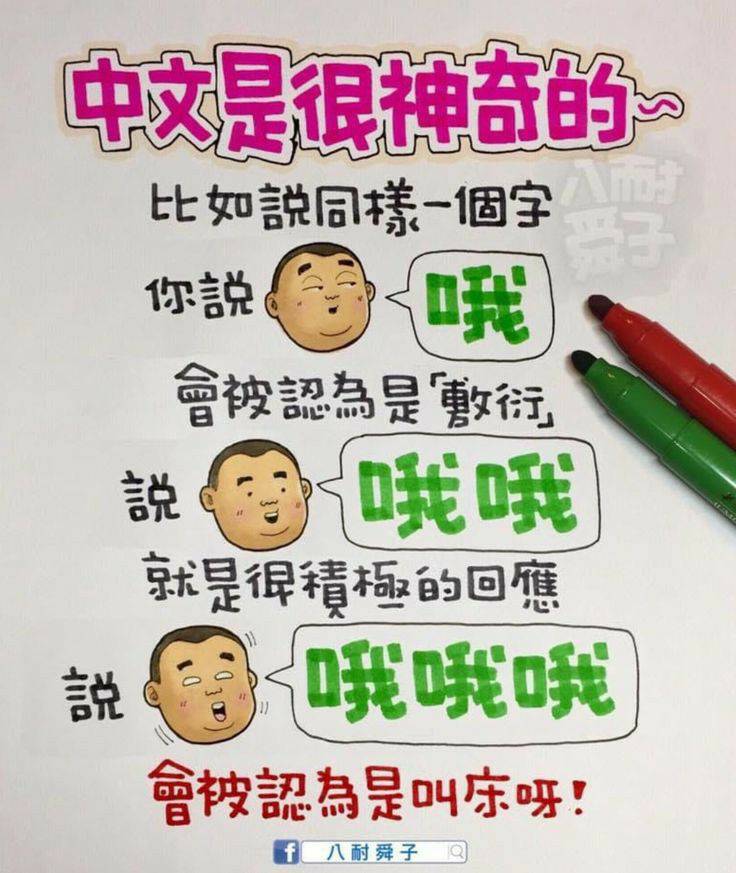 中文是很神奇的~
八耐
舜子
比如說同樣一個字
你說 哦
會被認為是「敷衍」
說 哦哦
就是很積極的回應
說 哦哦哦
會被認為是叫床呀!
f 八耐舜子